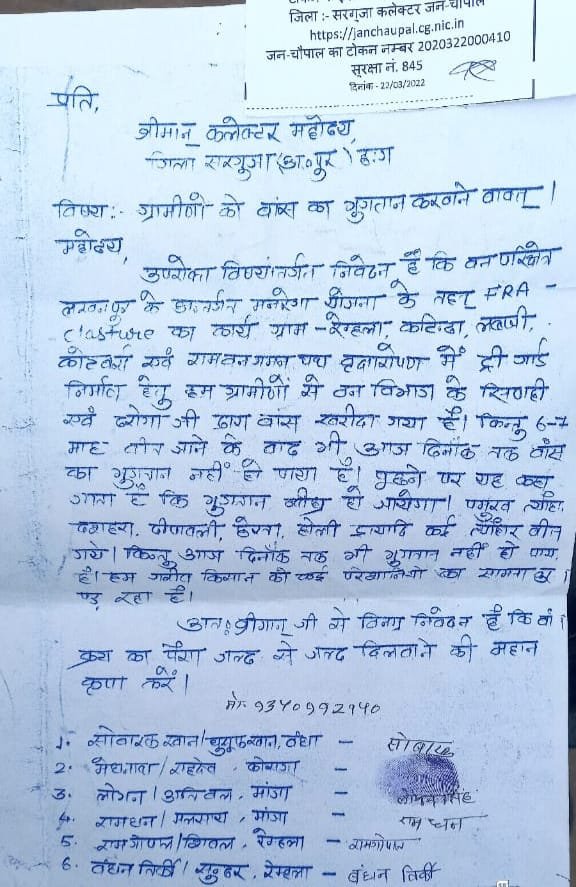 जिला :- सरगुजा कलेक्टर जन-चौपाल
https://janchaupal.cg.nic.in
जन-चौपाल का टोकन नम्बर 2020322000410
सुरक्षा नं. 845
दिनांक - 22/03/2022
प्रति,
श्रीमान् कलेक्टर महोदय,
जिला सरगुजा (अ०पुर) छ:ग
विषय:- ग्रामीणों को बांस का भुगतान करवाने बावत् ।
महोदय,
उपरोक्त विषयांतर्गत निवेदन है कि वन परिक्षेत्र
लखनपुर के अन्तर्गत मनरेगा योजना के तहत् FRA -
Clasture का कार्य ग्राम - रेम्हला, कटिन्दा, लब्जी,
एवं रामवनगमन पथ वृक्षारोपण में ट्री गार्ड
निर्माण हेतु हम ग्रामीणों से वन विभाग के सिपाही
एवं दरोगा जी द्वारा बांस खरीदा गया है। किन्तु 6-7
माह बीत जाने के बाद भी आज दिनाँक तक बाँस
का भुगतान नहीं हो पाया है। पुछने पर यह कहा
जाता है कि भुगतान शीघ्र हो जायेगा। प्रमुख त्यौहा.
दशहरा, दीपावली, छेरता, होली इत्यादि कई त्यौहार बीत
गये। किन्तु आज दिनाँक तक भी भुगतान नहीं हो पाय.
है। हम गरीब किसान को कई परेशानियों का सामना क
पड़ रहा है।
अतः श्रीमान् जी से विनम्र निवेदन है कि बां
क्रय का पैसा जल्द से जल्द दिलवाने की महान
कृपा करें।
मो० 9340992940
1. सोबारक खान / युसुफ खान, बंधा - सोबारक
2. मेघनाथ / सहदेव, कोरजा -
3. लोगन / अतिबल, मांजा - सिंह
4. रामधन / मांजा - राम धन
5. रामगोपाल / शिवल, रेम्हला - रामगोपाल
6. बंधन तिर्की / सुन्दर, रेम्हला - बंधन तिर्की